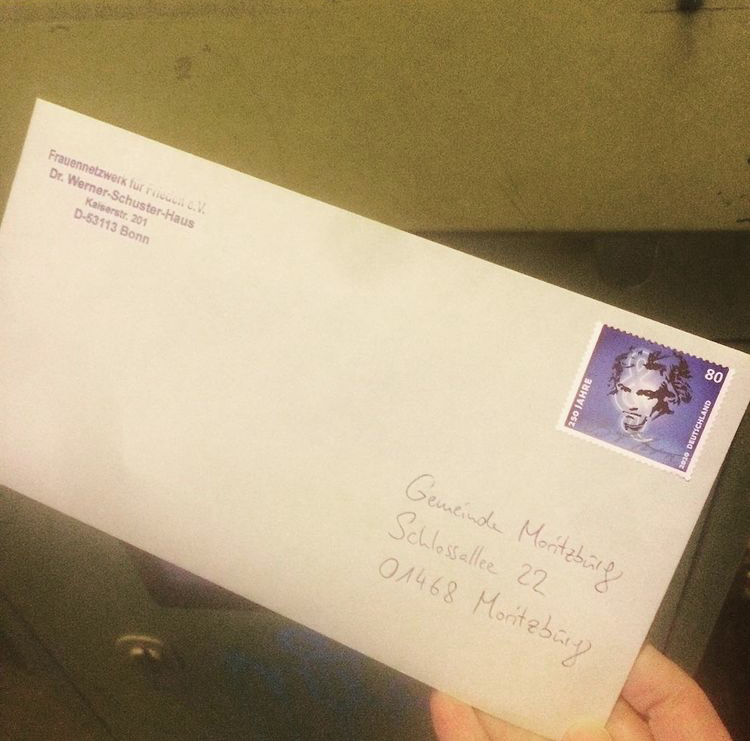 Frauennetzwerk für Frieden e.V.
Dr. Werner-Schuster-Haus
Kaiserstr. 201
D-53113 Bonn
250 JAHRE
80
2020 DEUTSCHLAND
Gemeinde Moritzburg
Schlossallee 22
01468 Moritzburg